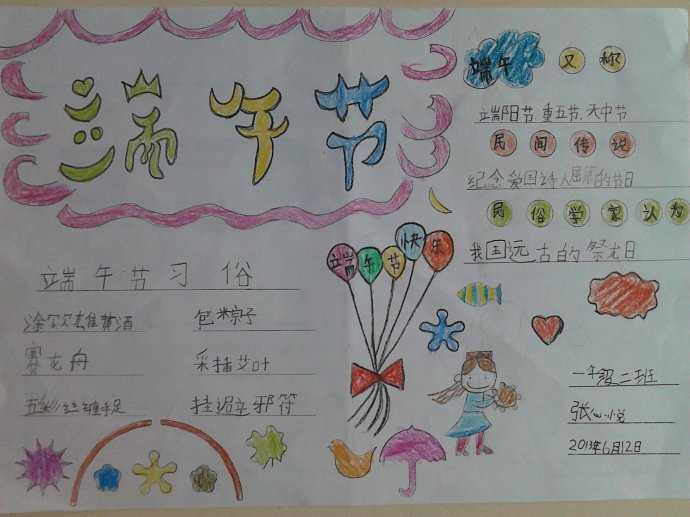 端午节
端午 又称
端阳节、重五节、天中节
民间传说
纪念爱国诗人屈原的节日
民俗学家认为
我国远古的祭龙日
端午节快乐
端午节习俗
涂饮雄黄酒
包粽子
赛龙舟
采插艾叶
五彩丝缠手足
挂避邪符
一年级二班
张心悦
2013年6月12日